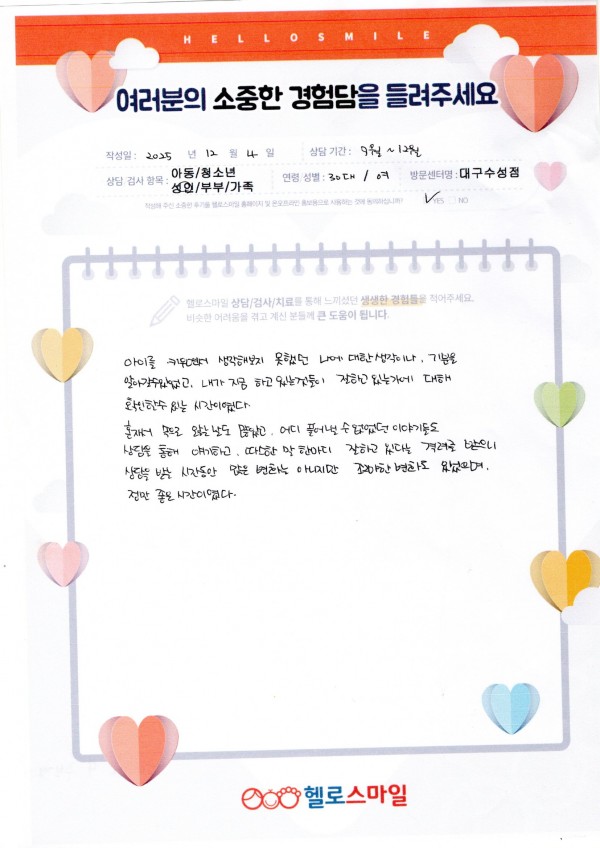 HELLOSMILE
여러분의 소중한 경험담을 들려주세요
작성일 : 2025 년 12 월 4 일 상담 기간 : 9월 ~ 12월
상담 검사 항목 : 아동/청소년 성인/부부/가족 연령, 성별 : 30대 / 여 방문센터명 : 대구수성점
작성해 주신 소중한 후기를 헬로스마일 홈페이지 및 온오프라인 홍보용으로 사용하는 것에 동의하십니까? ✓YES □ NO
헬로스마일 상담/검사/치료를 통해 느끼셨던 생생한 경험들을 적어주세요.
비슷한 어려움을 겪고 계신 분들께 큰 도움이 됩니다.
아이를 키우면서 생각해보지 못했던 나에 대한 생각이나, 기분을
알아갈수있었고, 내가 지금 하고 있는것들이 잘하고 있는가에 대해
확인할수 있는 시간이였다.
혼자서 속으로 앓는 날도 많았고, 어디 풀어낼 수 없었던 이야기들도
상담을 통해 얘기하고, 따스한 말 한마디 잘하고 있다는 격려를 받으니
상담을 받는 시간동안 많은 변화는 아니지만 조그마한 변화도 있었으며,
정말 좋은 시간이였다.
헬로스마일